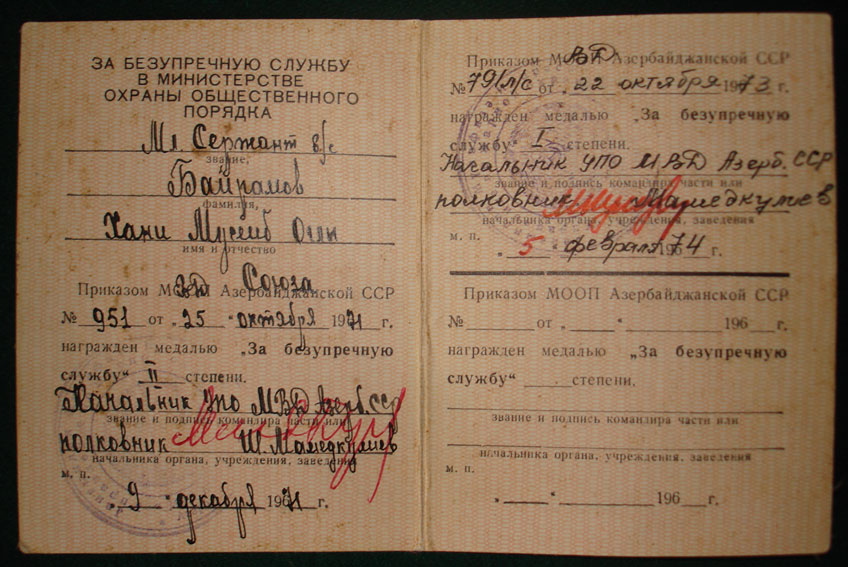 ЗА БЕЗУПРЕЧНУЮ СЛУЖБУ
В МИНИСТЕРСТВЕ
ОХРАНЫ ОБЩЕСТВЕННОГО
ПОРЯДКА
Мл. Сержант в/с
звание,
Байрамов
фамилия,
Хани Мусеиб Оглы
имя и отчество
ВД Союза
Приказом Азербайджанской ССР
№ 951 от „25 " октября 1971 г.
награжден медалью „За безупречную
службу" II степени.
Начальник УПО МВД Азерб. ССР
звание и подпись командира части или
полковник Ш. Мамедкулиев
начальника органа, учреждения, заведения
м. п.
„ 9 " декабря 1971 г.
ВД
Приказом МООП Азербайджанской ССР
№ 79/л/с от „22 октября 1973 г.
награжден медалью „За безупречную
службу" I степени.
Начальник УПО МВД Азерб. ССР
звание и подпись командира части или
полковник Мамедкулиев
начальника органа, учреждения, заведения
м. п.
„ 5 " февраля 1974 г.
Приказом МООП Азербайджанской ССР
№ от „ " 196 г.
награжден медалью „За безупречную
службу" степени.
звание и подпись командира части или
начальника органа, учреждения, заведения
м. п.
„ " 196 г.